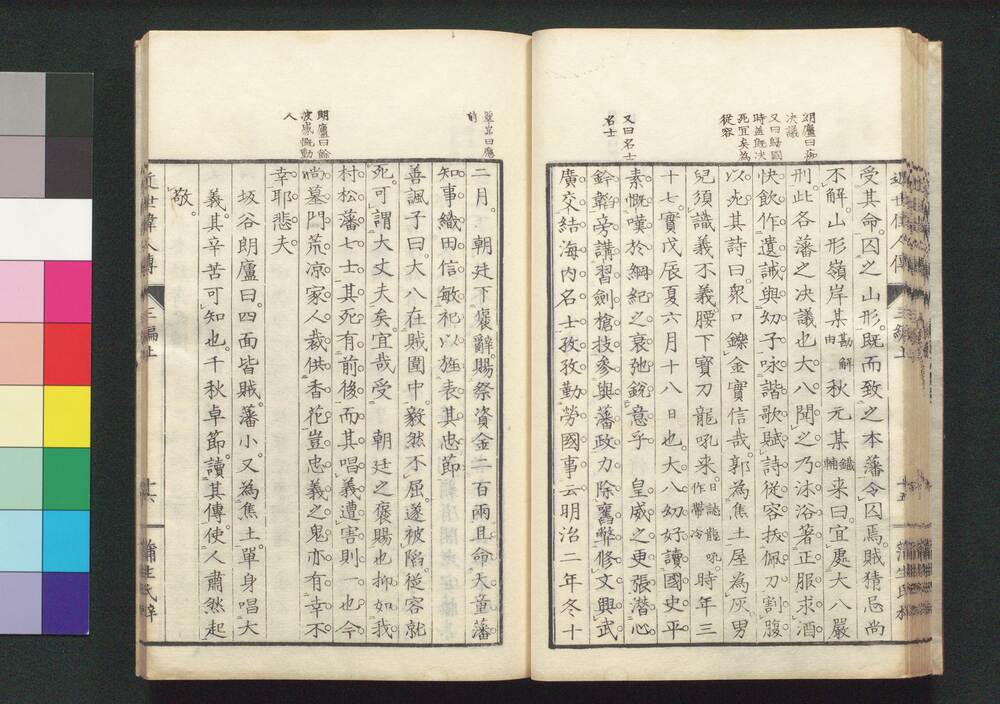 受其命。囚之山形。既而致之本藩。令囚焉。賊猜忌尚
不解。山形嶺岸某勘解由秋元某鐵輔来曰。宜處大八嚴
刑。此各藩之決議也。大八聞之。乃沐浴著正服。求酒
快飲。作遺誡。與幼子。咏諧歌。賦詩。從容拔佩刀割腹
以死。其詩曰。衆口鑠金實信哉。郭為焦土屋為灰。男
兒須識義不義。腰下寶刀龍吼来。時年三
十七。實戊辰夏六月十八日也。大八幼好讀國史。平
素慨嘆於綱紀之衰弛。銳意乎 皇威之更張。潜心
鈐韜。旁講習劍槍技。參與藩政。力除舊弊。修文興武。
廣交結海内名士。孜孜勤勞國事云。明治二年冬十
朗廬曰
決議
又曰歸國
時蓋既決
死宜矣為
從容
又曰名士
名士
近世偉人傳
三編上
十五
蒲生氏
二月。 朝廷下褒辭。賜祭資金二百兩。且命天童藩
知事織田信敏祀以旌表其忠節
善諷子曰。大八在賊圍中。毅然不屈。遂被陷。從容就
死。可謂大丈夫矣。宜哉受 朝廷之褒賜也。抑如我
村松藩七士。其死有前後。而其唱義遭害則一也。今
尚墓門荒凉。家人裁供香花。豈忠義之鬼亦有幸不
幸耶。悲夫。
坂谷朗廬曰。四面皆賊。藩小。又為焦土。單身唱大
義。其辛苦可知也。千秋卓節。讀其傳。使人肅然起
敬。
朗廬曰餘
波感慨動
人
近世偉人傳
三編上
蒲生氏